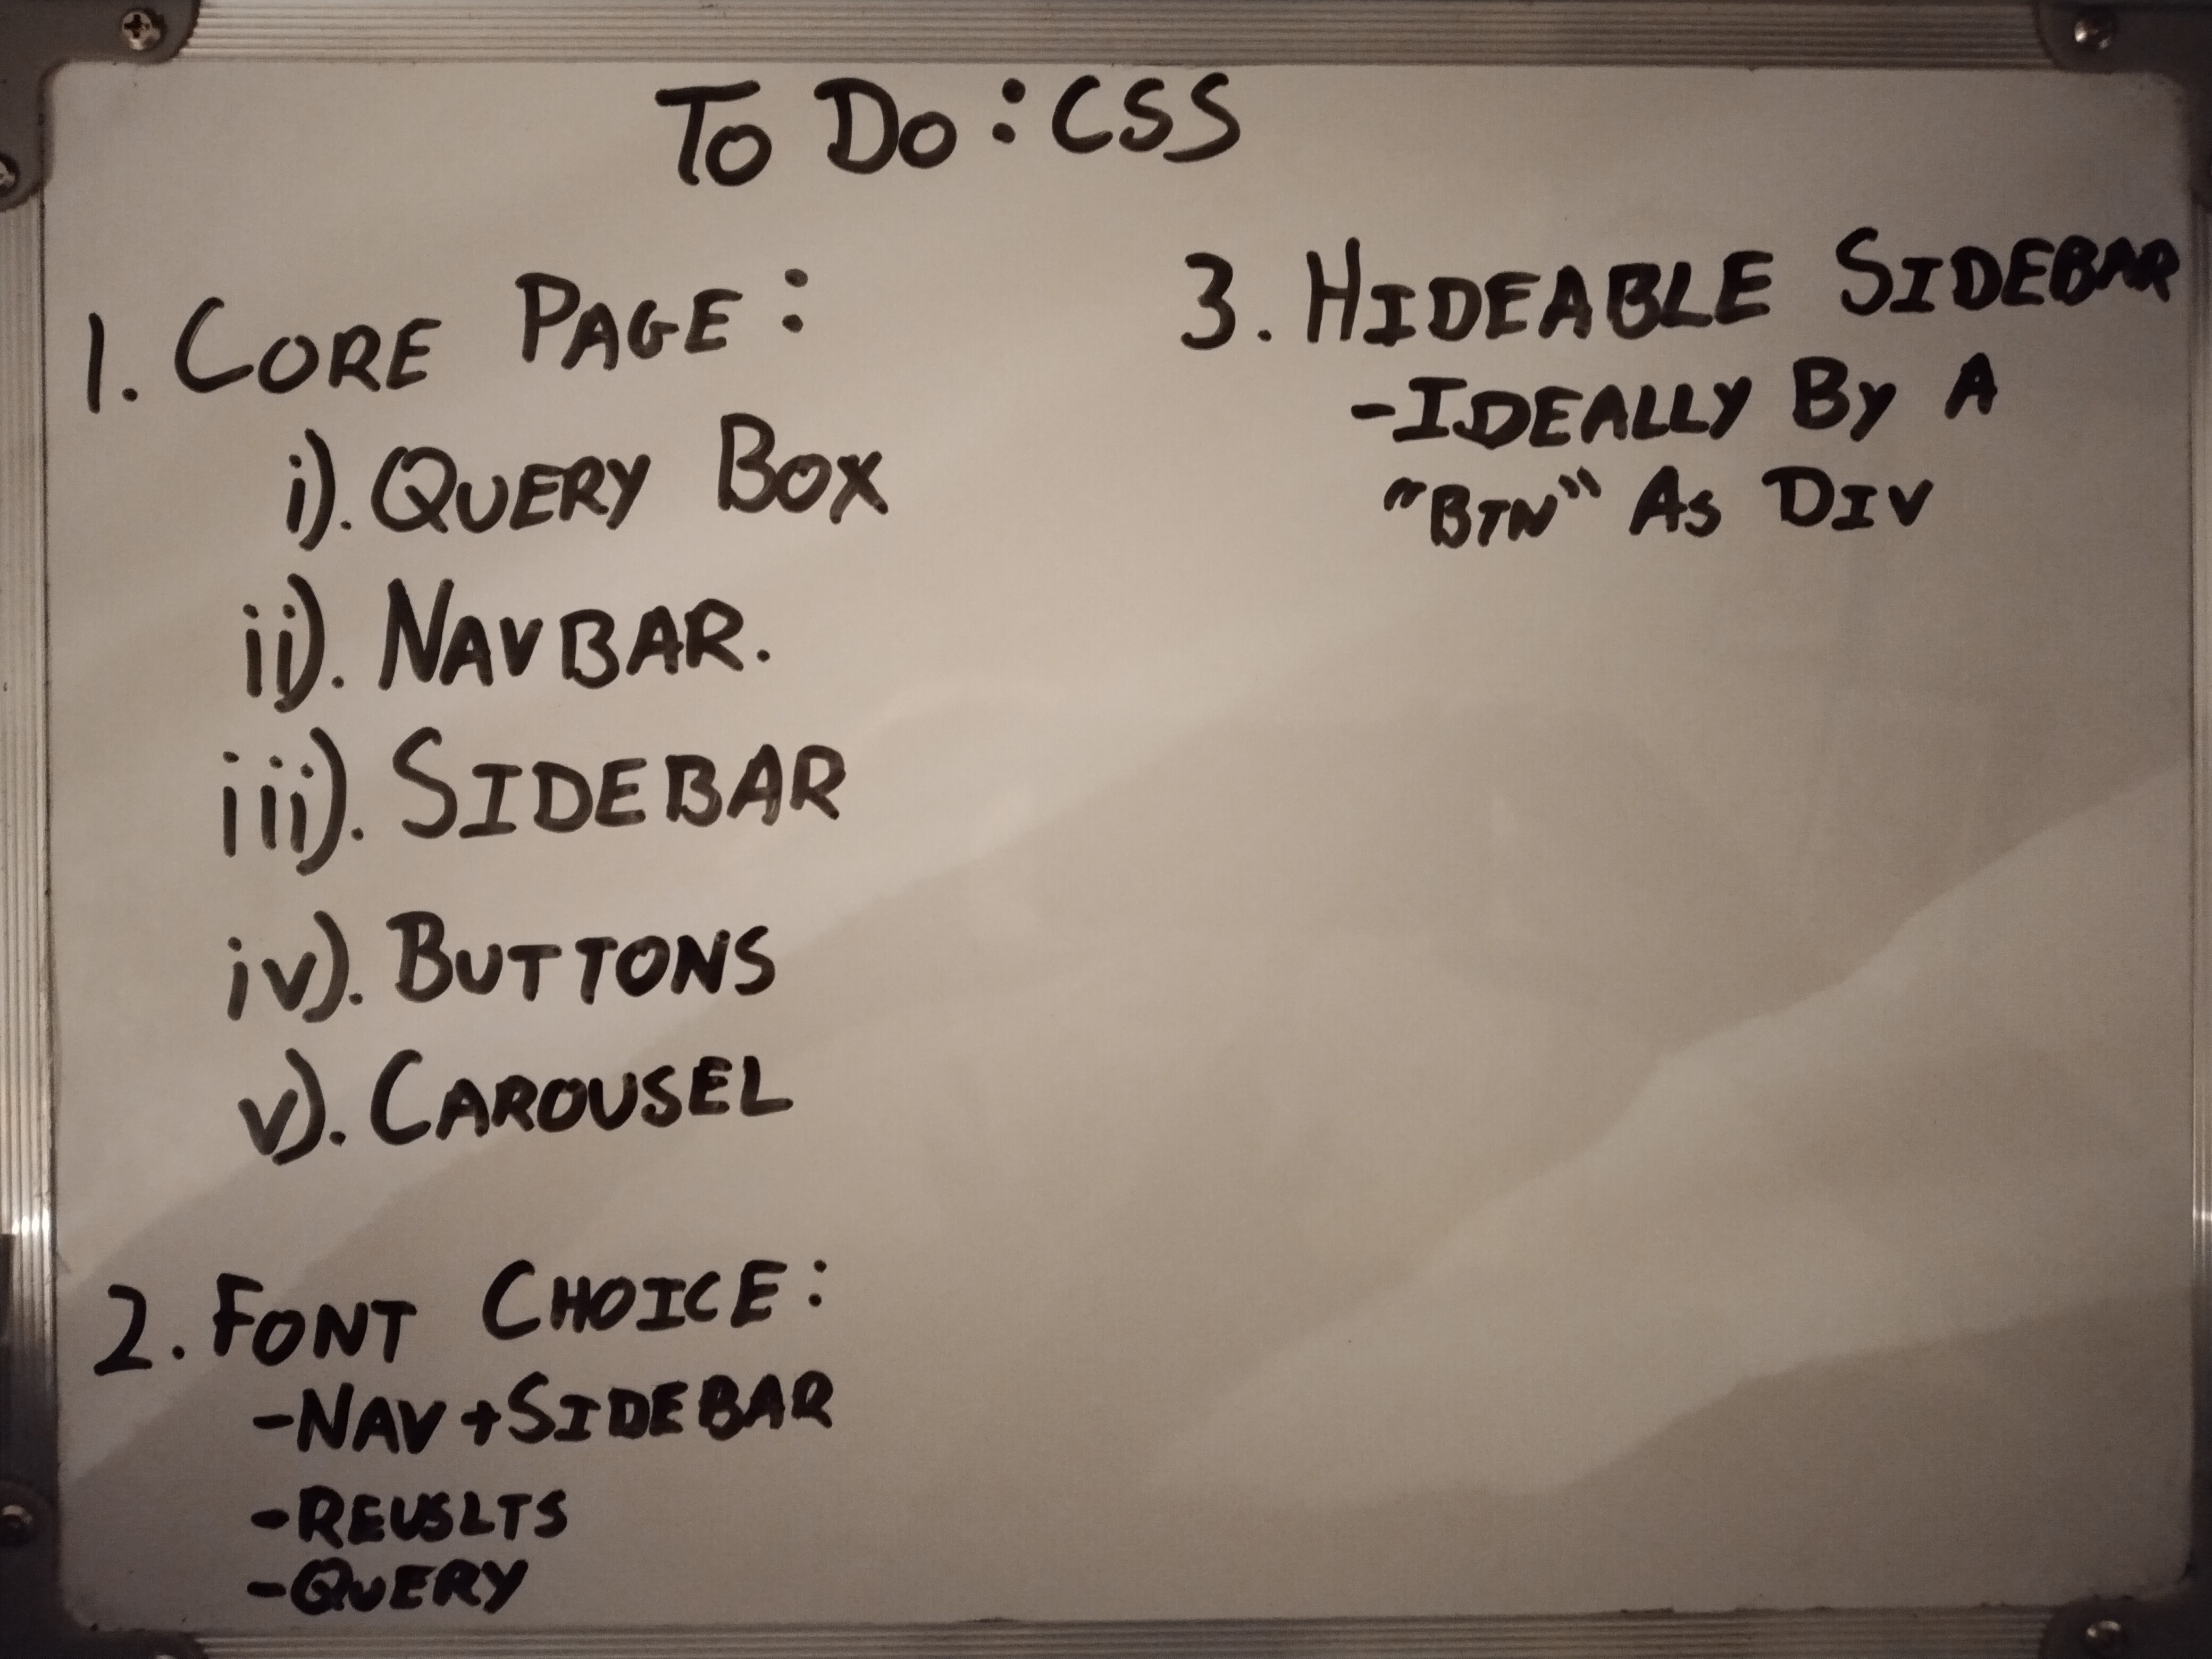 To Do: CSS
1. CORE PAGE:
i). QUERY BOX
ii). NAVBAR.
iii). SIDEBAR
iv). BUTTONS
v). CAROUSEL
2. FONT CHOICE:
-NAV+SIDEBAR
-REUSLTS
-QUERY
3. HIDEABLE SIDEBAR
-IDEALLY By A
"BTN" As DIV